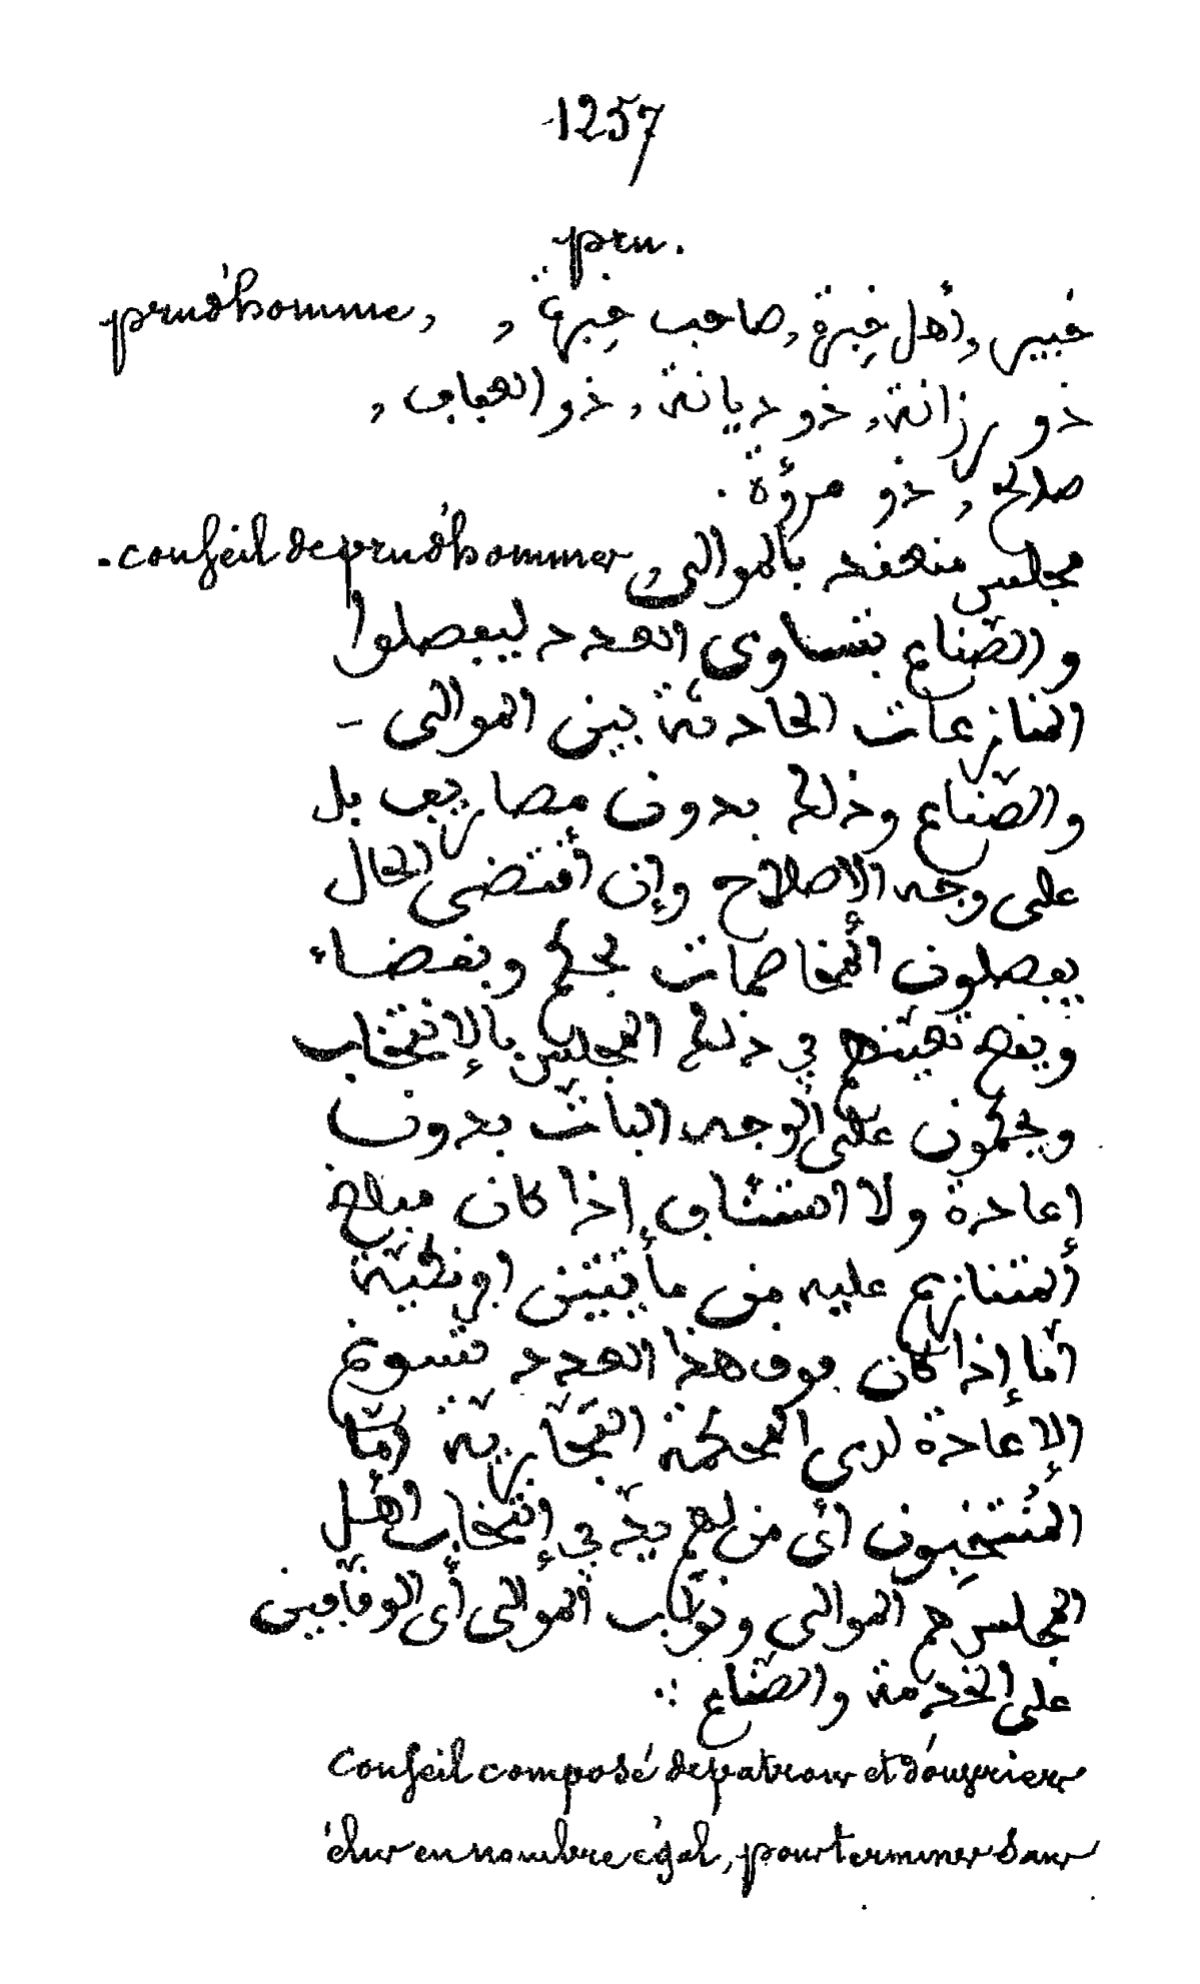 1257
pru.
prud'homme, خبير, أهل خِبرة, صاحب خِبرة,
ذو رزانة, ذو ديانة, ذو العفاف,
صالح, ذو مروّة.
conseil de prud'hommes. مجلس منعقد بالموالى
والصّناع بتساوى العدد ليفصلوا
المنازعات الحادثة بين الموالى -
والصّناع وذلك بدون مصاريف بل
على وجه الإصلاح وإن أقتضى الحال
يفصلون المخاصمات بحكم وبقضاء
ويقع تعيّنهم في ذلك المجلس بالإنتخاب
ويحكمون على الوجه البات بدون
إعادة ولا استئناف إذا كان مبلغ
المتنازع عليه من مأيتين افرنكيّة
أمّا إذا كان فوق هذا العدد تسوغ
الإعادة لدى المحكمة التّجاريّة أمّا
المُنتخِبون أى من لهم يدّ في إنتخاب أهل
المجلس هم الموالى ونوّاب الموالى أى الوقّافين
على الخدمة والصّناع ∴
Conseil composé de patrons et d'ouvriers
élus en nombre égal, pour terminer sans